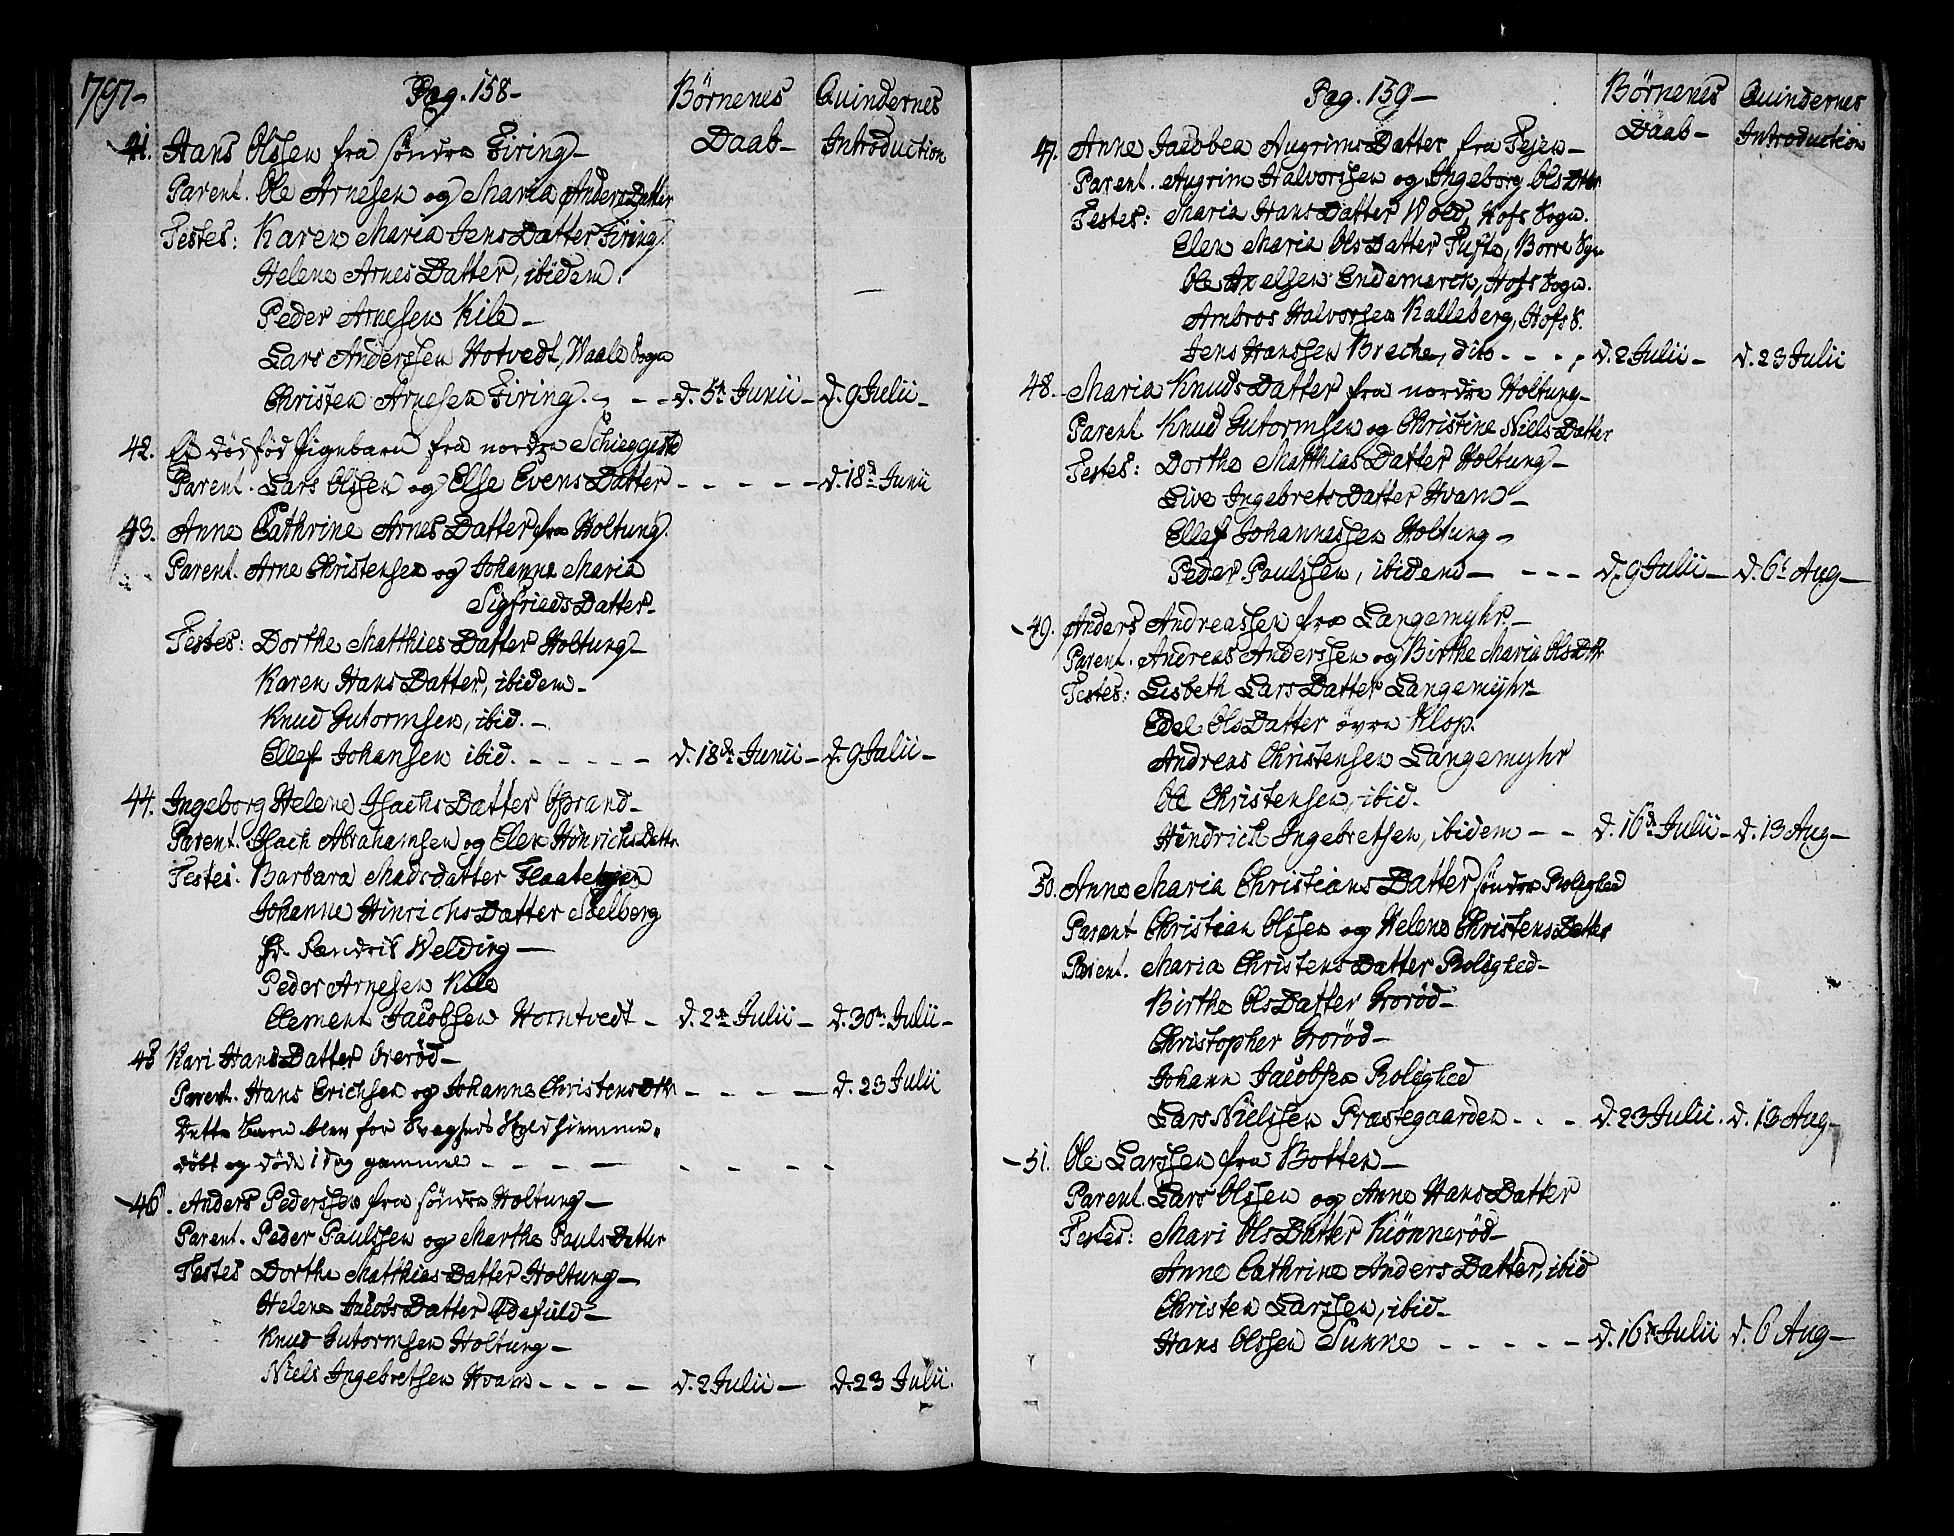 1797-
Pag. 158-
Börnenes Daab-
Quindernes Introduction
41. Hans Olssen fra söndre Firing-
Parent. Ole Arnesen og Maria AndersDatter
Testes: Karen Maria JensDatter Firing.
Helene ArnesDatter, ibidem.
Peder Arnesen Kile-
Lars Anderssen Hotvedt, Waale Sogn
Christen Arnesen Firing. - - - d. 5te Junii - d. 9 Julii -
42. Et dödföd Pigebarn fra nordre Schieggestd
Parent. Lars Olssen og Else EvensDatter - - - - - d. 18de Junii
43. Anne Cathrine ArnesDatter fra Holtung.
Parent. Arne Christensen og Johanne Maria
SigfriedsDatter-
Testes: Dorthe MatthiesDatter Holtung-
Karen HansDatter, ibidem-
Knud Gutormsen, ibid.-
Ellef Johansen ibid. - - - - - d. 18de Junii - d. 9 Julii -
44. Ingeborg Helene IsachsDatter Oprand-
Parent. Isach Abrahamsen og Elen HinrichsDattr
Testes. Barbara Madsdatter Flaateien
Johanne HinrichsDatter Solberg
Hr. Fændrik Welding-
Peder Arnesen Kile
Clement Jacobsen Horntvedt - d. 2den Julii - d. 30te Julii -
45 Kari HansDatter Oreröd-
Parent. Hans Erichsen og Johanne ChristensDtr. - - - - d. 23 Julii
Dette Barn blev for Svagheds Skyld hiemme-
döbt og döde 1 dag gammel - - - - - - - -
46. Anders Pederssen fra söndre Holtung-
Parent. Peder Paulssen og Marthe PaulsDatter
Testes Dorthe MatthiasDatter Holtung-
Helene JacobsDatter Odefuld-
Knud Gutormsen Holtung-
Niels Ingebretsen Hvam - - - - d. 2 Julii - d. 23 Julii.
Pag. 159-
Börnenes Daab-
Quindernes Introduction
47. Anne Jacobea AugrimsDatter fra Tejen-
Parent. Augrim Halvorssen og Ingeborg OlsDttr
Testes: Maria HansDatter Wold, Hofs Sogn.
Elen Maria OlsDatter Tufte, Borre Sogn
Ole Axelsen Endemarck, Hofs Sogn.
Ambros Halvorsen Kalleberg, Hofs S.
Jens Hanssen Breche, dito - - - d. 2 Julii - d. 23 Julii
48. Maria KnudsDatter fra nordre Holtung-
Parent Knud Gutormsen og Christine NielsDatter
Testes: Dorthe MatthiasDatter Holtung-
Live IngebretsDatter Hvam-
Ellef Johannessen Holtung-
Peder Paulssen, ibidem - - - - d. 9 Julii - d. 6te Aug-
49. Anders Andreassen fra Langemyhr-
Parent. Andreas Anderssen og Birthe Maria OlsDtr
Testes: Lisbeth LarsDatter Langemyhr-
Edel OlsDatter övre Klop.
Andreas Christensen Langemyhr
Ole Christensen, ibid.
Hendrich Ingebretsen, ibidem - - d. 16de Julii - d. 13 Aug-
50. Anne Maria ChristiansDatter söndre Rolighed
Parent Christian Olssen og Helene ChristensDatter
Parent. Maria ChristensDatter Rolighed-
Birthe OlsDatter Groröd-
Christopher Groröd-
Johann Jacobsen Rolighed
Lars Nielssen Præstegaarden - - - d. 23 Julii. d. 13 Aug-
51. Ole Larssen fra Botten-
Parent. Lars Olssen og Anne HansDatter
Testes: Mari OlsDatter Kiönneröd-
Anne Cathrine AndersDatter, ibid
Christen Larssen, ibid-
Hans Olssen Sunne - - - - - d. 16de Julii d. 6 Aug-